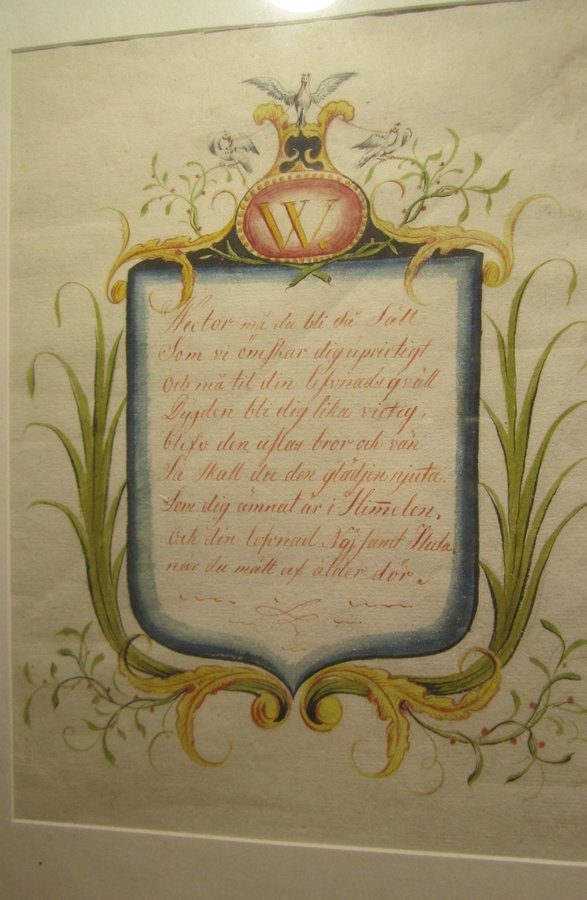 W.
Wector må du bli så säll
Som vi önskar dig uprictigt
Och må til din lefvnads qväll
Dygden bli dig lika victig,
blifv den uslas bror och vän
Så skall du den glädjen njuta
Som dig ämnat är i Him̄elen,
Och din lefvnad Nöj samt sluta
når du mått af ålder dör.